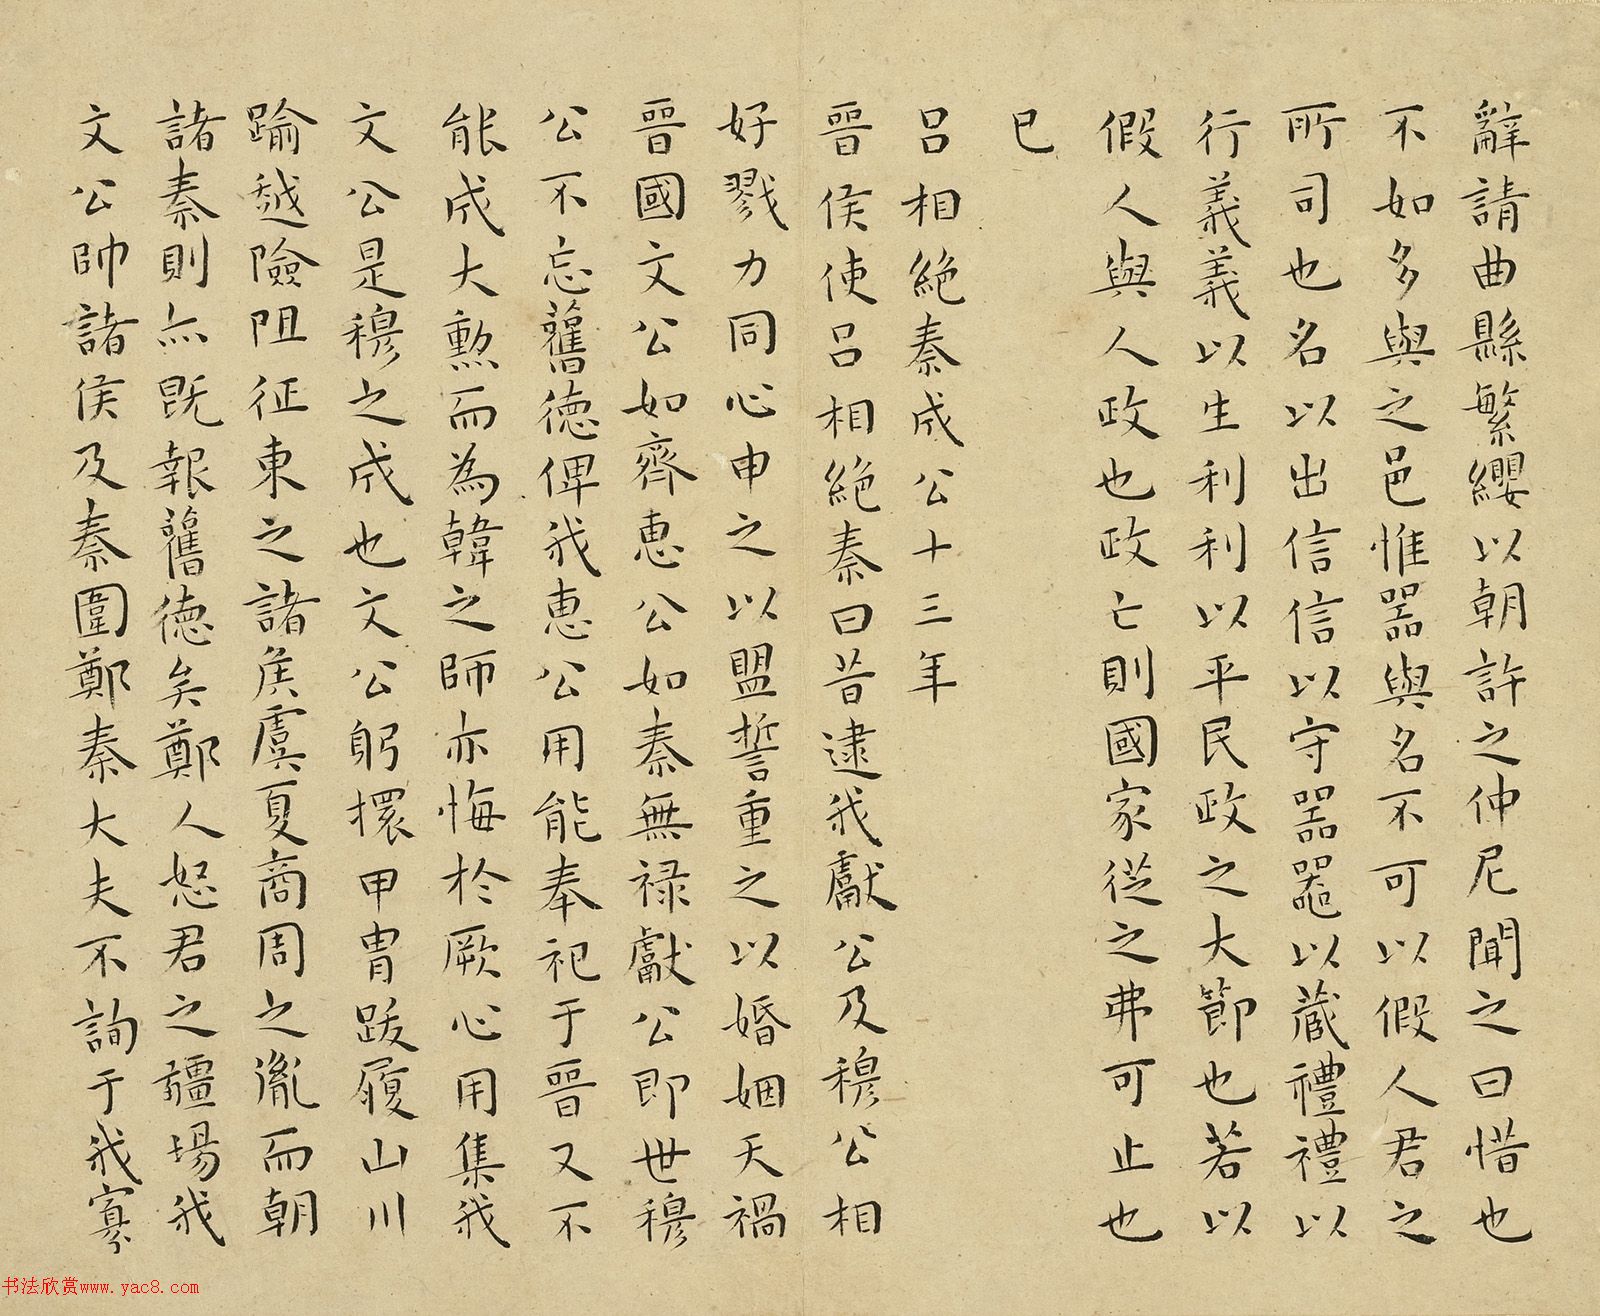 辭請曲縣繁纓以朝許之仲尼聞之曰惜也
不如多與之邑惟器與名不可以假人君之
所司也名以出信信以守器器以藏禮禮以
行義義以生利利以平民政之大節也若以
假人與人政也政亡則國家從之弗可止也
已
呂相絕秦成公十三年
晉侯使呂相絕秦曰昔逮我獻公及穆公相
好戮力同心申之以盟誓重之以婚姻天禍
晉國文公如齊惠公如秦無祿獻公即世穆
公不忘舊德俾我惠公用能奉祀于晉又不
能成大勲而為韓之師亦悔於厥心用集我
文公是穆之成也文公躬擐甲冑跋履山川
踰越險阻征東之諸侯虞夏商周之胤而朝
諸秦則亦既報舊德矣鄭人怒君之疆場我
文公帥諸侯及秦圍鄭秦大夫不詢于我寡
书法欣赏www.yac8.com